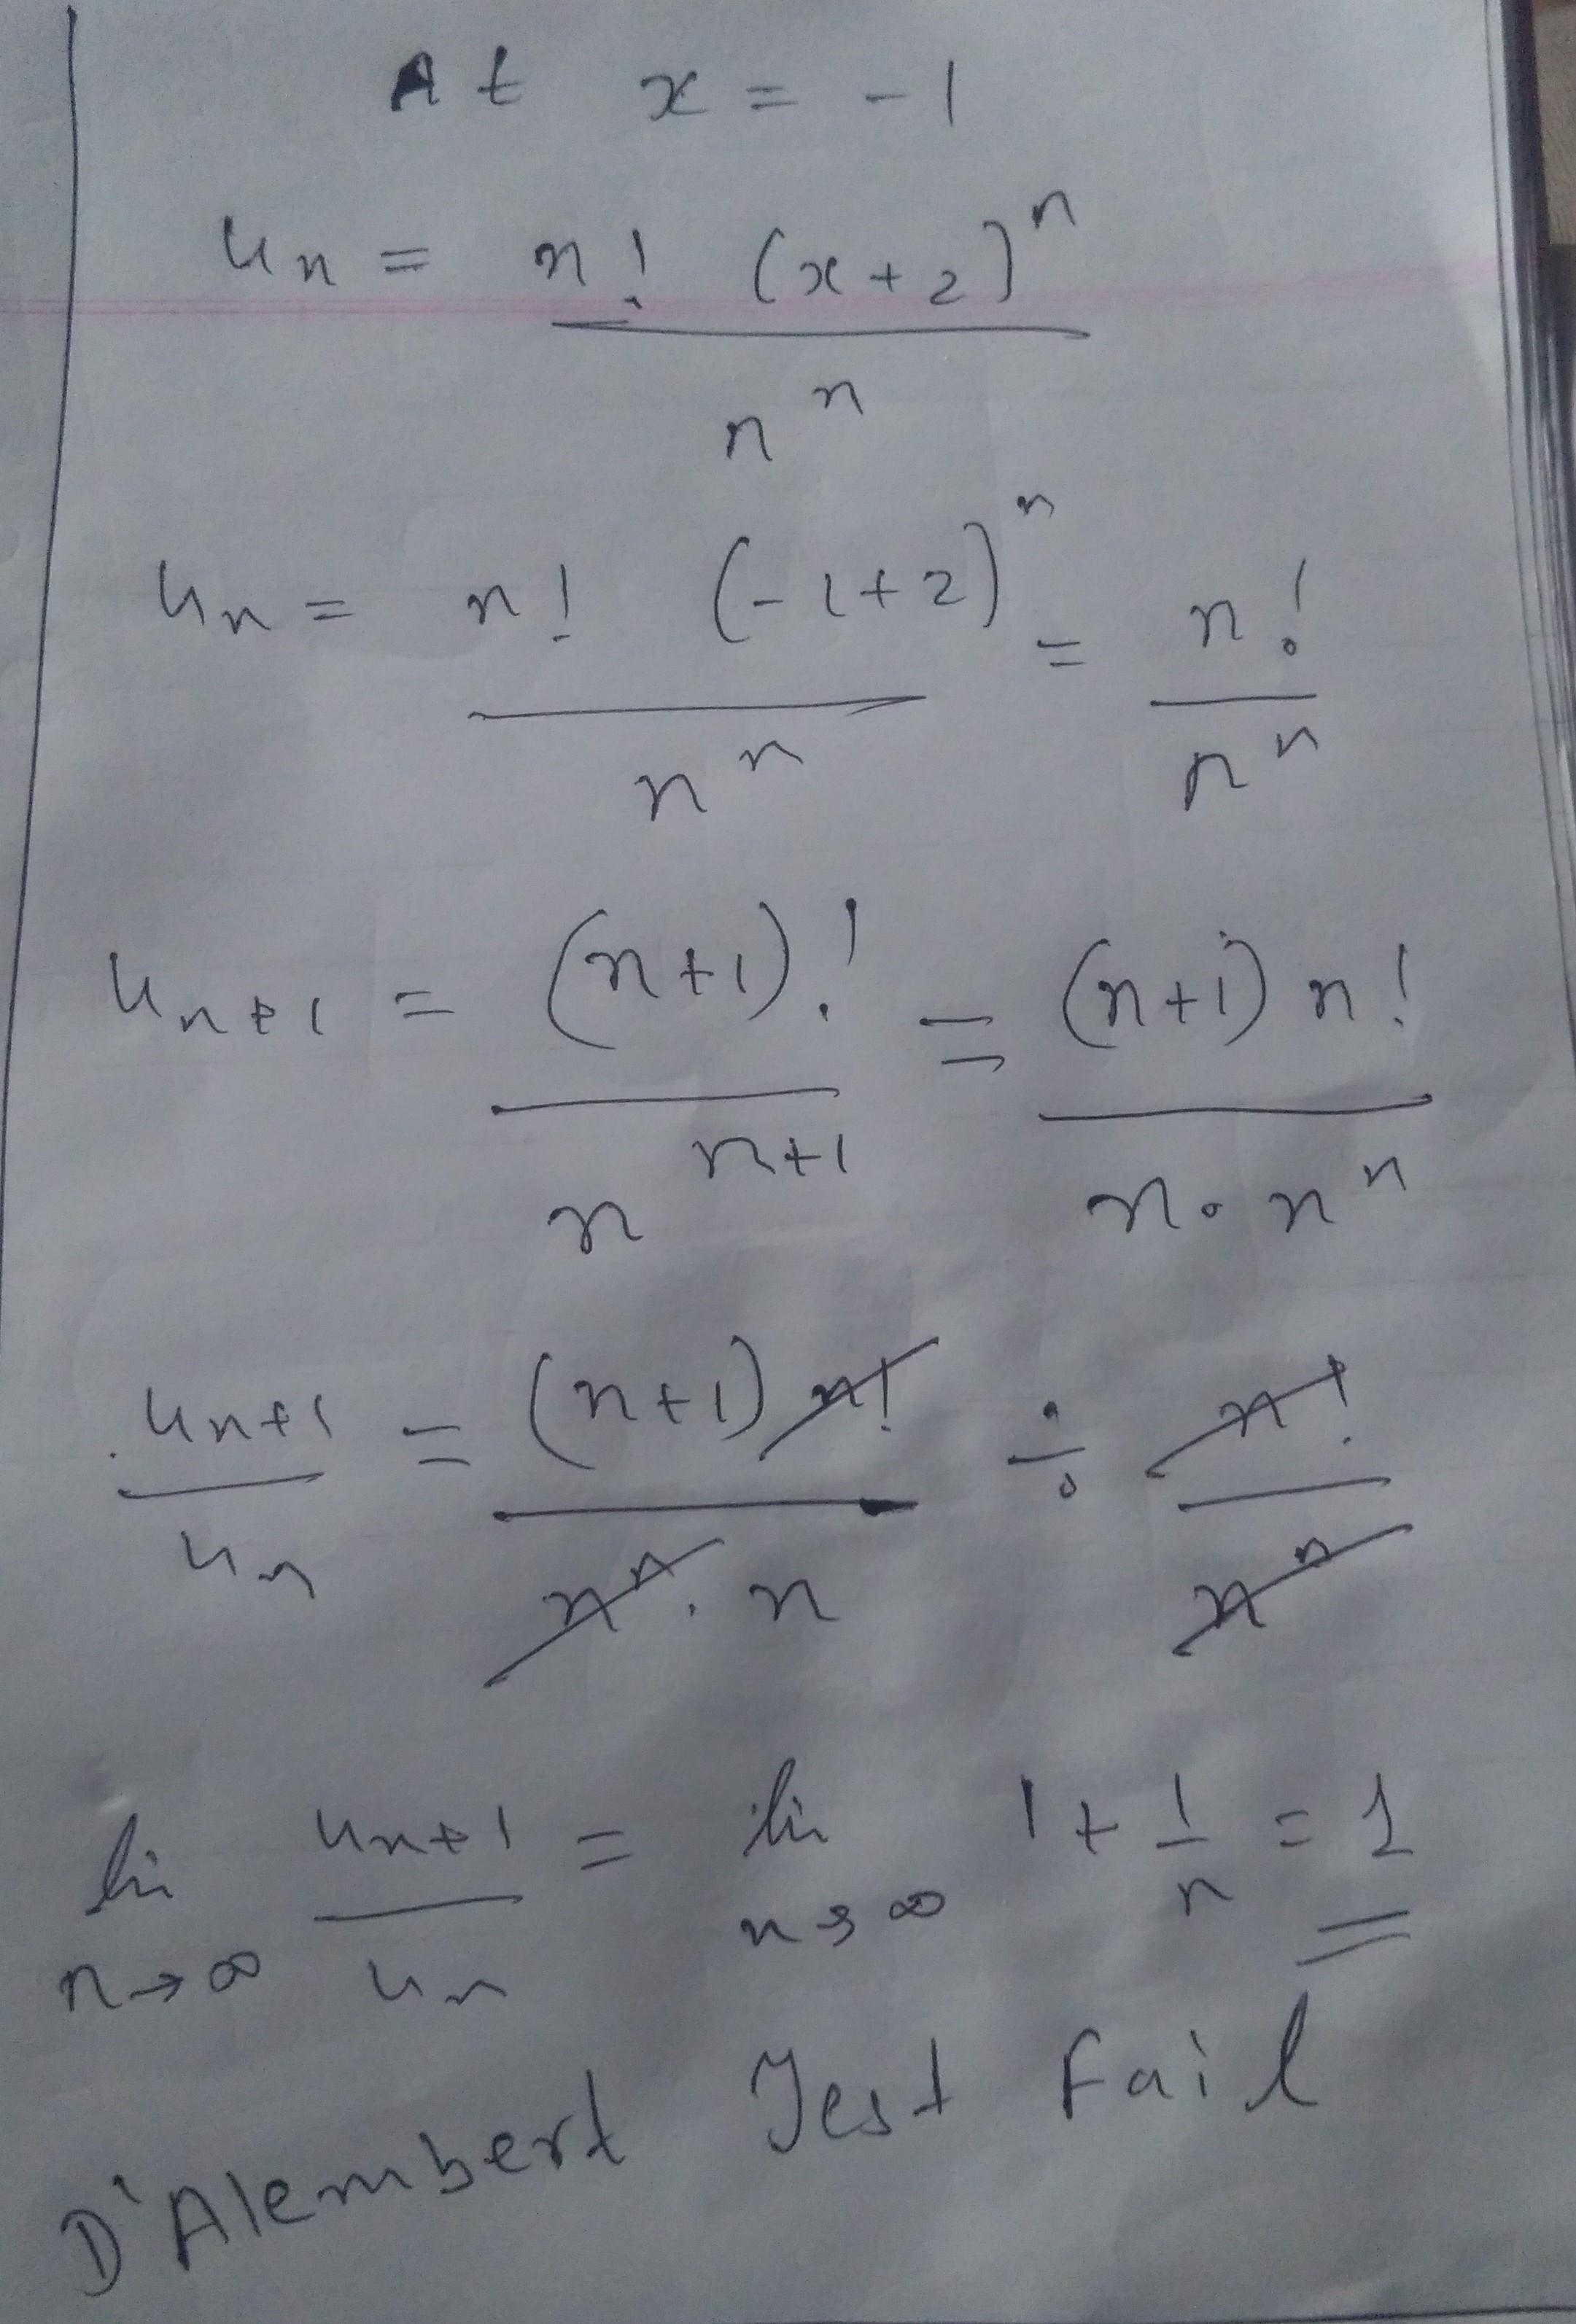 At x = -1
u_n = n! (x+2)^n / n^n
u_n = n! (-1+2)^n / n^n = n! / n^n
u_n+1 = (n+1)! / n^n+1 = (n+1) n! / n . n^n
u_n+1 / u_n = (n+1) n! / n^n . n ÷ n! / n^n
li n→∞ u_n+1 / u_n = li n→∞ 1 + 1/n = 1
D'Alembert Test Fail